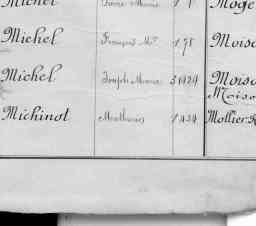 Michel Pierre Marie Moge
Michel François Mie 178 Moiso
Michel Joseph Marie Moiso
Moiso
Michinot Mathurin 1434 Mollier